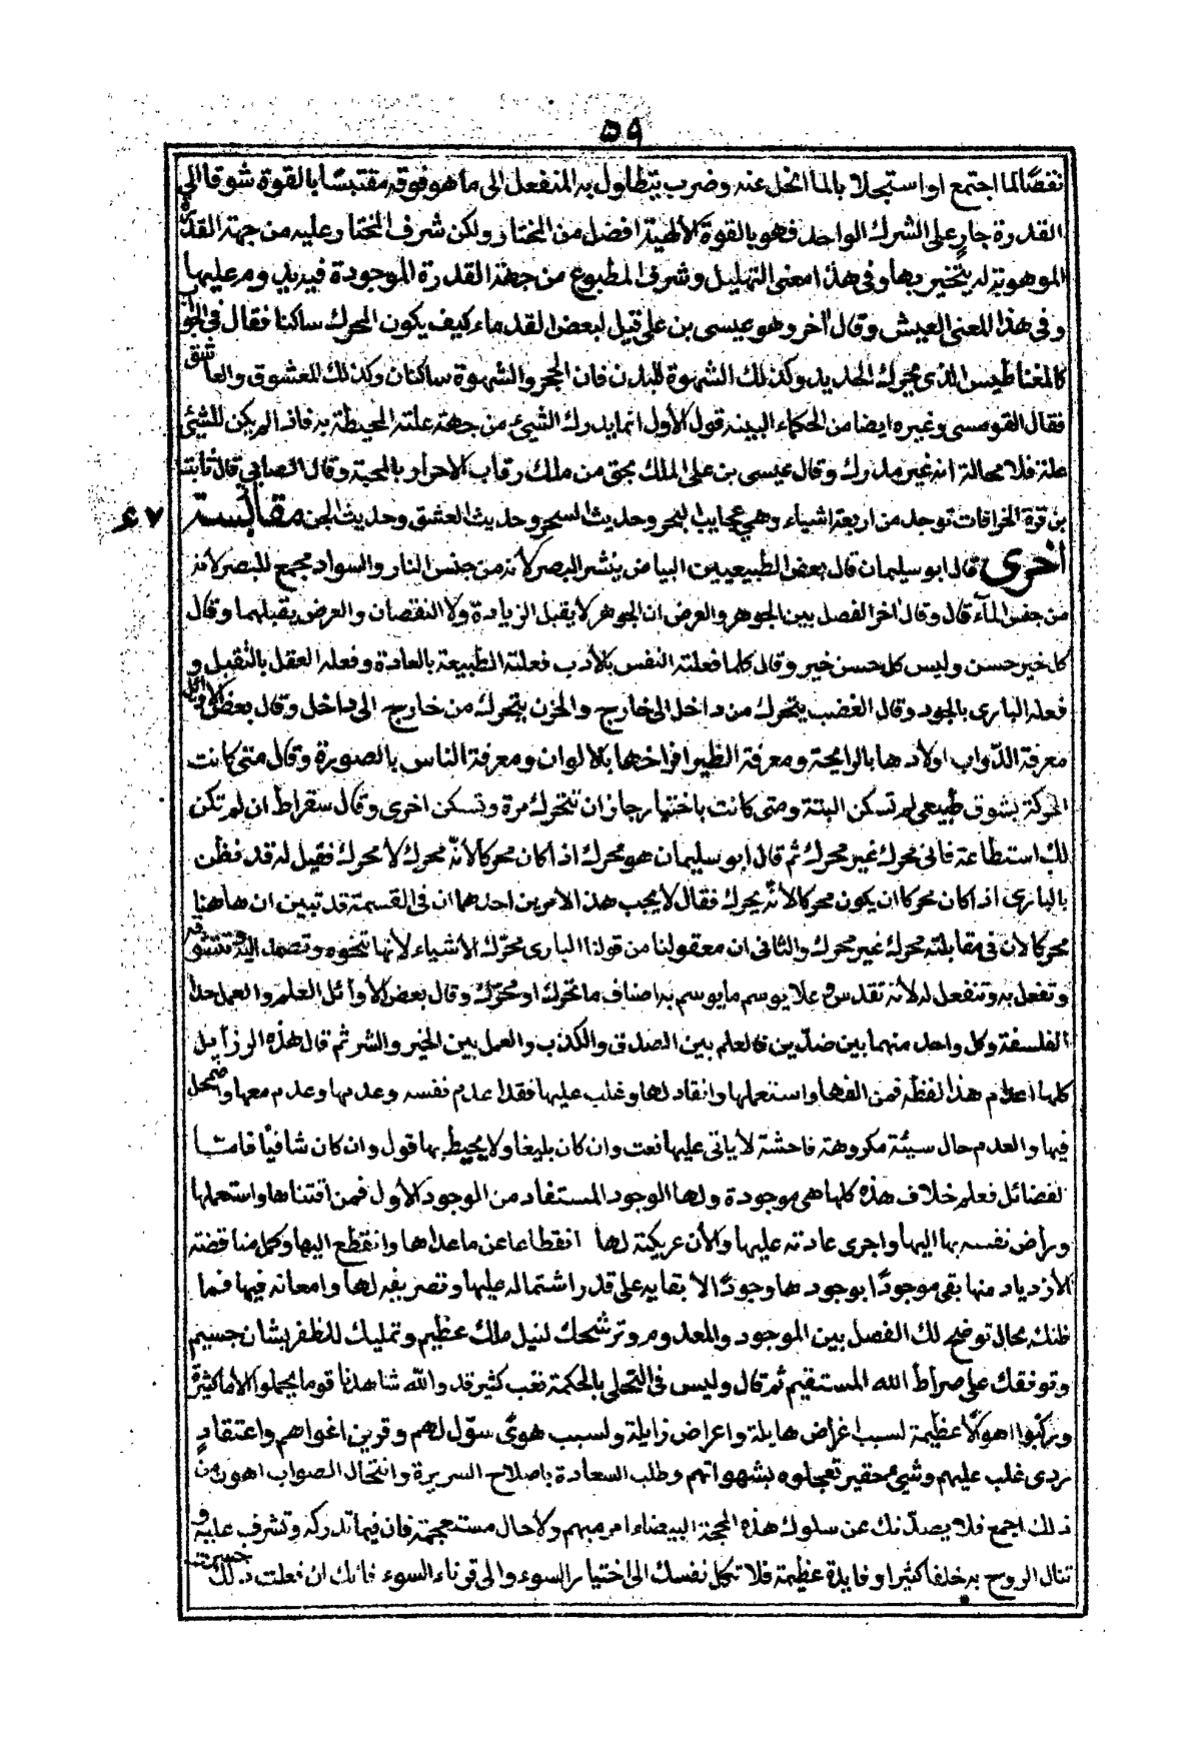 ٥٩
نفضًا لما اجتمع او استجلابا لما انحل عنه وضرب يتطاول به المنفعل الى ما هو فوقه مقتبسًا بالقوة شوقا الى
القدرة جارٍ على الشرك الواحد فهو بالقوة الألهية افضل من المختار ولكن شرف المختار وعليه من جهة القدرة
الموهوبة له يتخير بها وفى هذا معنى التهليل وشرف المطبوع من جهة القدرة الموجودة فيه يديـ ومر عليها
وفى هذا المعنى العيش وقال آخر وهو عيسى بن على قيل لبعض القدماء كيف يكون المحرك ساكنا فقال فى الحو
كالمغناطيس الذى يحرك الحديد وكذلك الشهوة للبدن فان الحجر والشهوة ساكنان وكذلك المعشوق والعاشق
فقال القومسى وغيره ايضا من الحكماء البينة قول الأول انما يدرك الشيئ من جهة علته المحيطة به فاذا لم يكن للشيئ
علة فلا محالة انه غير مدرك وقال عيسى بن على الملك بحق من ملك رقاب الاحرار بالمحبة وقال الصابي قال ثابت
بن قرة الخرافات توجد من اربعة اشياء وهي عجايب البحر وحديث السحر وحديث العشق وحديث الجن مقابسة ٤٧
اخرى قال ابو سليمان قال بعض الطبيعيين البياض ينشر البصر لأنه من جنس النار والسواد مجمع للبصر لأنه
من جنس المآء قال وقال آخر الفصل بين الجوهر والعرض ان الجوهر لا يقبل الزيادة ولا النقصان والعرض يقبلهما وقال
كل خير حسن وليس كل حسن خير وقال كلما فعلته النفس بالأدب فعلته الطبيعة بالعادة وفعله العقل بالتقبل و
فعله البارى بالجود وقال الغضب يتحرك من داخل الى خارج والحزن يتحرك من خارج الى داخل وقال بعض الاوائل
معرفة الدّواب اولادها بالرايحة ومعرفة الطير افراخها بالالوان ومعرفة الناس بالصورة وقال متى كانت
الحركة بشوق طبيعى لم تسكن البتة ومتى كانت باختيار جاز ان تتحرك مرة وتسكن اخرى وقال سقراط ان لم تكن
لك استطاعة فانى محرك غير محرك ثم قال ابو سليمان هو محرك اذ كان محركا لأنّه محرك لا محرك فقيل له قد نظن
بالبارى اذ كان محركا ان يكون محركا لأنّه يحرك فقال لا يجب هذا الأمرين احدهما ان فى القسمة قد تبين ان هاهنا
محركا لان فى مقابلته محرك غير محرك والثانى ان معقولنا من قولنا البارى محرّك الأشياء لأنها تنحوه وتصمد اليه وتتشوقه
وتفعل به وتنفعل له لأنه تقدس وعلا يوسم ما يوسم به اصناف ما تحرك او محرّك وقال بعض الأوآئل العلم والعمل حدا
الفلسفة وكل واحد منهما بين ضدّين فالعلم بين الصدق والكذب والعمل بين الخير والشر ثم قال هذه الرزآيل
كلها اعدام هذا لفظه فمن الفها واستعملها وانقاد لها وغلب عليها فقد اعدم نفسه وعدمها وعدم معها واضمحل
فيها والعدم حال سيئة مكروهة فاحشة لا ياتى عليها نعت وان كان بليغا ولا يحيط بها قول وان كان شافيًا فامتـا
لفضائل فعلم خلاف هذه كلها هى موجودة ولها الوجود المستفاد من الوجود الأول فمن اقتناها واستعملها
وراض نفسه بها اليها واجرى عادته عليها والأن عريكته لها انقطاعا عن ما عداها وانقطع اليها وكمل مناقضته
الأزدياد منها بقى موجودًا بوجودها وجودًا الأبقا به على قدر اشتماله عليها وتصريفه لها وامعانه فيها فـما
ظنك بحال توضح لك الفصل بين الموجود والمعدوم وترشحك لنيل ملك عظيم وتمليك للظفر بشان جسيم
وتوفقك على صراط الله المستقيم ثم قال وليس فى التحلى بالحكمة تعب كثير قد والله شاهدنا قوما يحملوا الاما كثيرة
وركبوا اهوالًا عظيمة لسبب اغراض هايلة واعراض زايلة ولسبب هوىً سوّل لهم وقرين اغواهم واعتقادٍ
ردى غلب عليهم وشيئ محقير تعجلوه بشهواتهم وطلب السعادة باصلاح السريرة وانتحال الصواب اهون من
ذلك اجمع فلا يصدّنك عن سلوك هذه المحجة البيضاء امر مبهم ولا حال مستعجمة فان فيما تدركه وتشرف عليه و
تنال الروح به خلفا كثيرا وفايدة عظيمة فلا تكل نفسك الى اختيار السوء والى قرناء السوء فانك ان فعلت ذلك خسرت